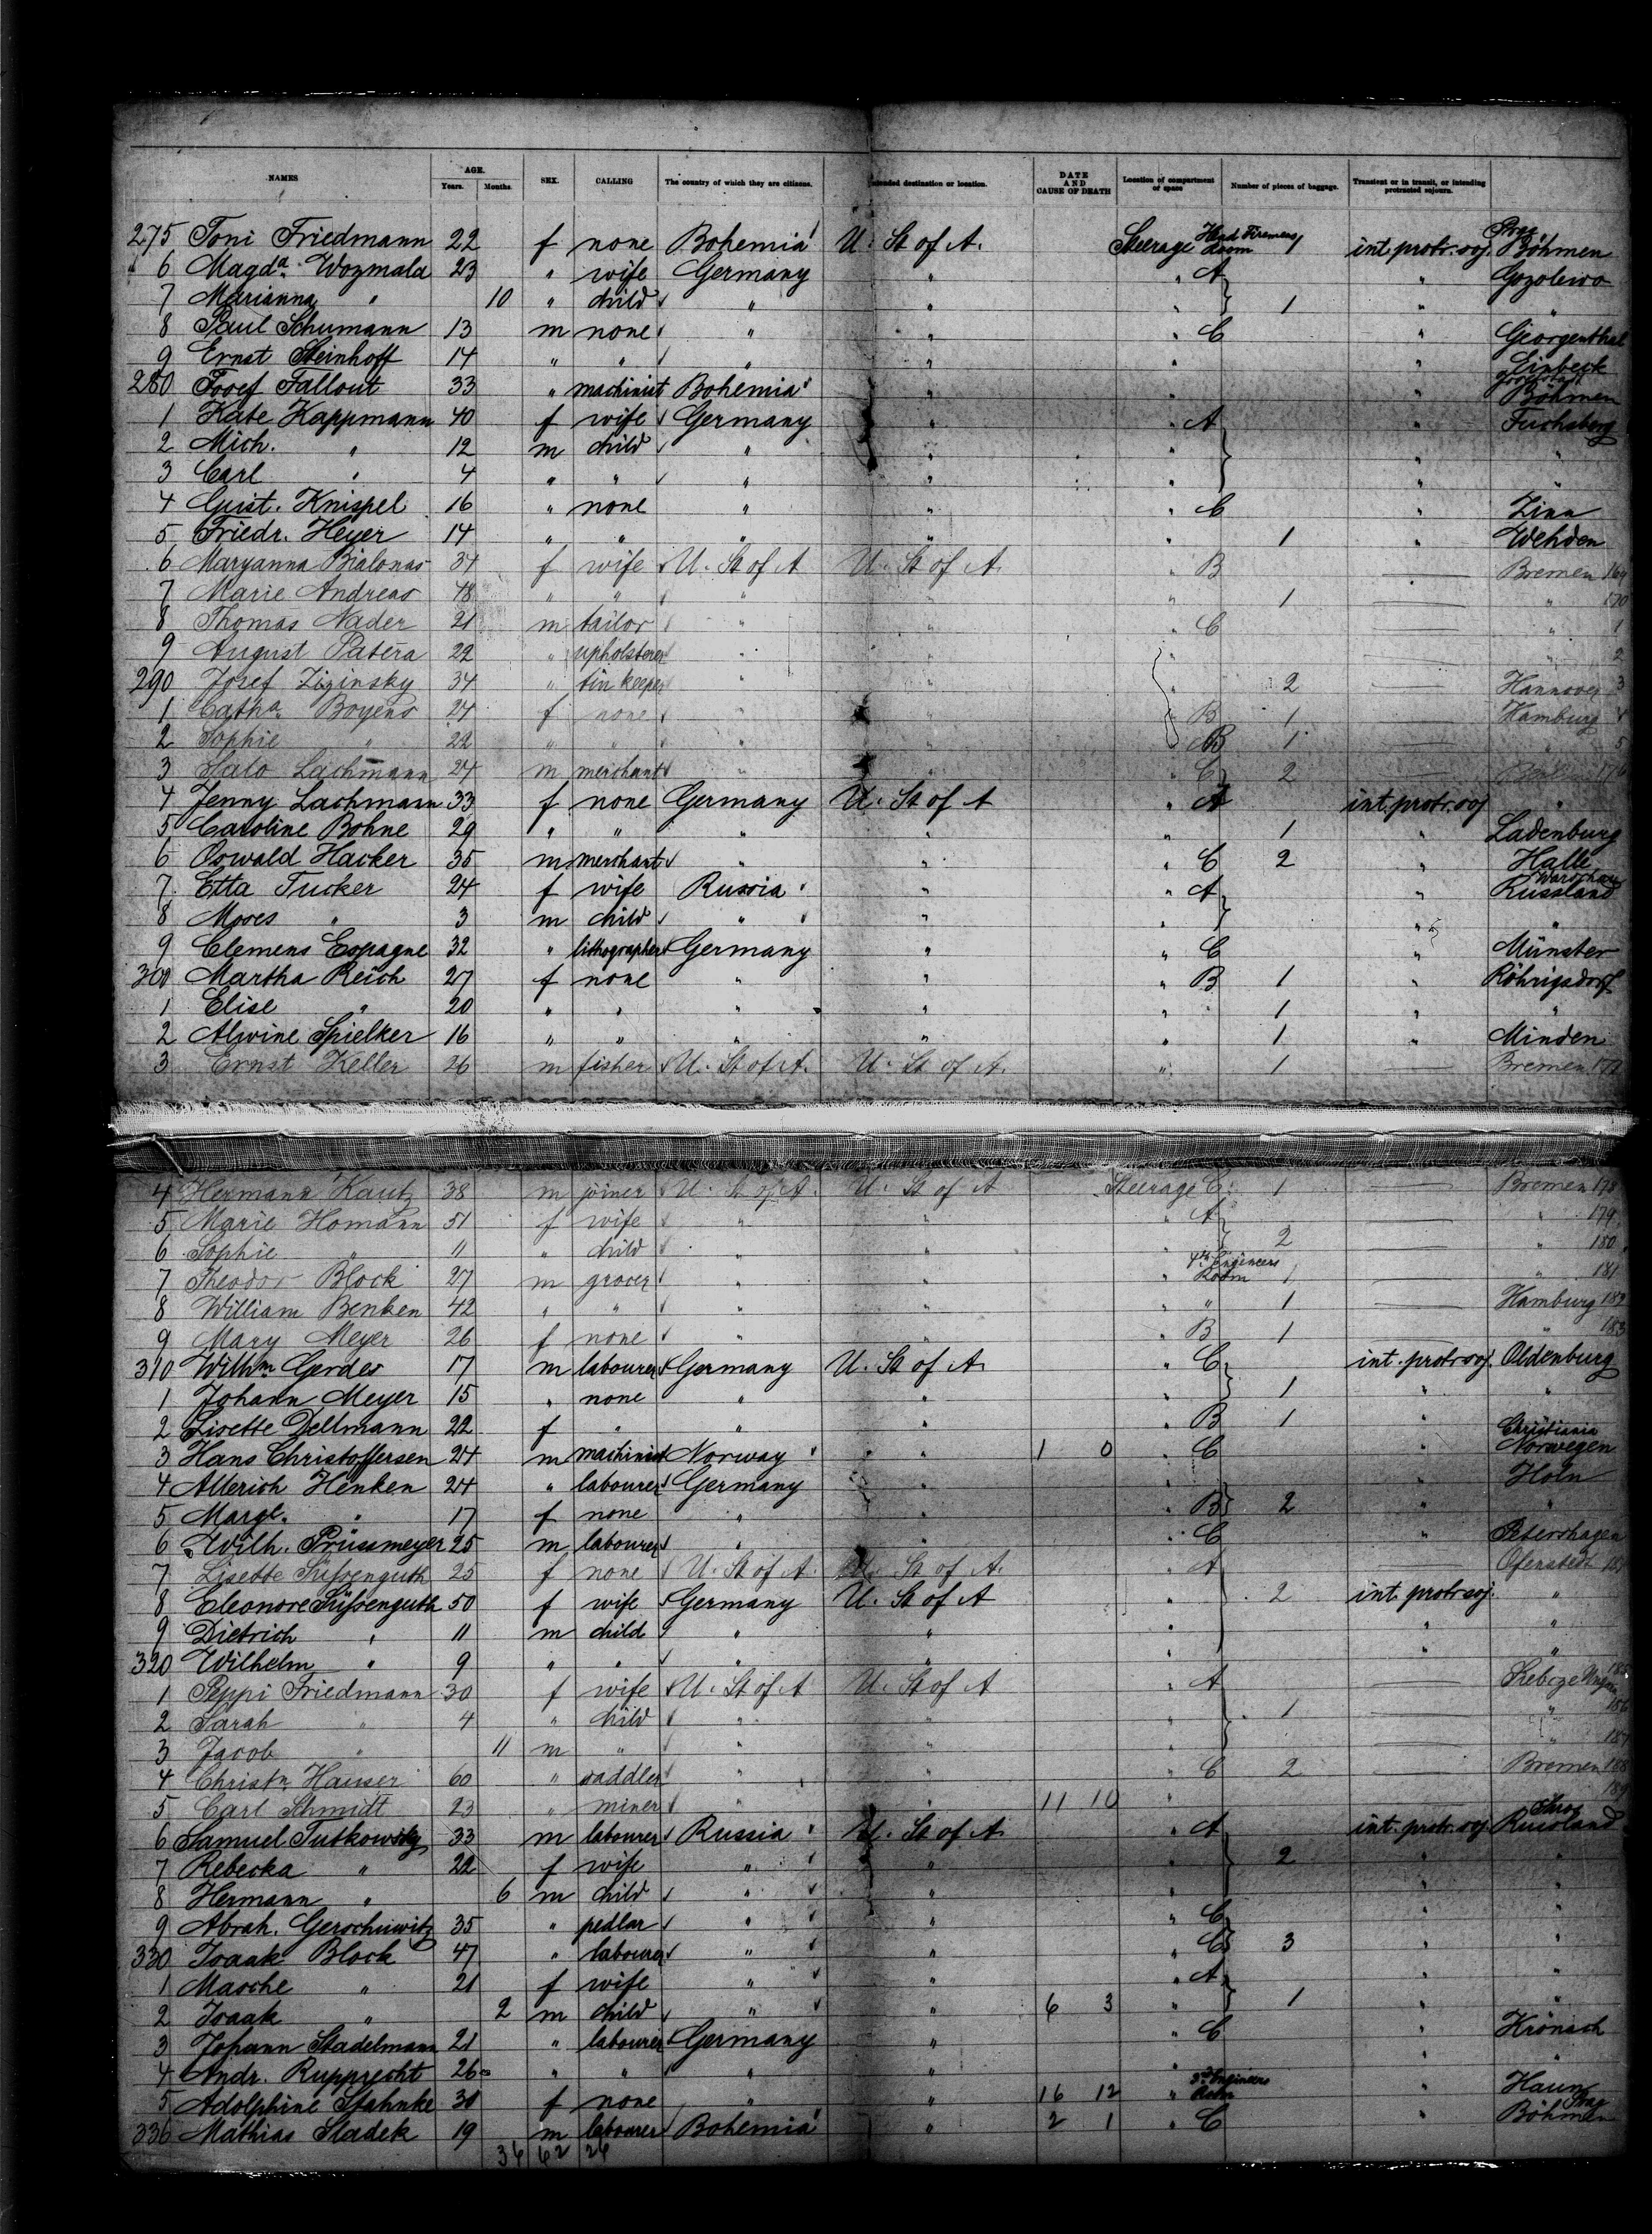 NAMES AGE. Years. Months. SEX. CALLING The country of which they are citizens. Intended destination or location. DATE AND CAUSE OF DEATH Location of compartment or space Number of pieces of baggage. Transient or in transit, or intending protracted sojourn.
275 Toni Friedmann 22 f none Bohemia U. St of A. Steerage Room 1 int. protr. soj. Böhmen
6 Magda. Wozmala 23 " wife Germany " " A "
7 Marianna " 10 " child " " " 1 " "
8 Paul Schumann 13 m none " " " C " Georgenthal
9 Ernst Steinhoff 14 " " " " " " Einbeck
280 Josef Fallout 33 " machinist Bohemia " " " Böhmen
1 Kate Kappmann 40 f wife Germany " " A " Fuchsberg
2 Mich. " 12 m child " " " " "
3 Carl " 4 " " " " " " "
4 Gust. Knispel 16 " none " " " C " Zinn
5 Friedr. Heyer 14 " " " " " 1 " Wehden
6 Maryanna Bialonas 34 f wife U. St of A U. St of A. " B — Bremen 169
7 Marie Andreas 48 " " " " " 1 — " 170
8 Thomas Nader 21 m tailor " " " C — " 1
9 August Patera 22 " upholsterer " " " — " 2
290 Josef Zizinsky 34 " tin keeper " " " 2 — Hannover 3
1 Catha. Boyens 24 f none " " " B 1 — Hamburg 4
2 Sophie " 22 " " " " " B 1 — " 5
3 Salo Lachmann 24 m merchant " " " C 2 — Berlin 176
4 Jenny Lachmann 33 f none Germany U. St of A " A int. protr. soj "
5 Caroline Bohne 29 " " " " " 1 " Ladenburg
6 Oswald Hacker 35 m merchant " " " C 2 " Halle
7 Etta Tucker 24 f wife Russia " " A " Warschau Russland
8 Moses " 3 m child " " " " "
9 Clemens Espagne 32 " lithographer Germany " " C " Münster
300 Martha Reich 27 f none " " " B 1 " Röhrigsdorf
1 Elise " 20 " " " " " 1 " "
2 Alwine Spielker 16 " " " " " 1 " Minden
3 Ernst Keller 26 m fisher U. St of A. U. St of A. " 1 — Bremen 177
4 Hermann Kautz 38 m joiner U. St of A. U. St of A Steerage C. 1 — Bremen 178
5 Marie Homann 51 f wife " " " A — " 179
6 Sophie " 11 " child " " " 2 — " 180
7 Theodor Block 27 m grocer " " " 4th Engineers Room 1 — " 181
8 William Benken 42 " " " " " " 1 — Hamburg 182
9 Mary Meyer 26 f none " " " B 1 — " 183
310 Wilhm. Gerdes 17 m labourer Germany U. St of A. " C int. protr. soj. Oldenburg
1 Johann Meyer 15 " none " " " 1 " "
2 Lisette Dellmann 22 f " " " " B 1 "
3 Hans Christoffersen 24 m machinist Norway " 1 0 " C " Christiania Norwegen
4 Allerich Henken 24 " labourer Germany " " " Holn
5 Margt. " 17 f none " " " B 2 " "
6 Wilh. Prüssmeyer 25 m labourer " " " C " Petershagen
7 Lisette Süssenguth 25 f none U. St of A. U. St of A. " A — 184
8 Eleonore Süssenguth 50 f wife Germany U. St of A " 2 int. protr soj. "
9 Dietrich " 11 m child " " " " "
320 Wilhelm " 9 " " " " " " "
1 Peppi Friedmann 30 f wife U. St of A U. St of A " A — 185
2 Sarah " 4 " child " " " 1 — " 186
3 Jacob " 11 m " " " " — " 187
4 Christn. Hauser 60 " saddler " " " C 2 — Bremen 188
5 Carl Schmidt 23 " miner " " 11 10 " — 189
6 Samuel Tutkowsky 33 m labourer Russia U. St of A " A int. protr. soj Russland
7 Rebecka " 22 f wife " " " 2 " "
8 Hermann " 6 m child " " " " "
9 Abrah. Gerschuwitz 35 " pedlar " " " C " "
330 Isaak Block 47 " labourer " " " C 3 " "
1 Masche " 21 f wife " " " A " "
2 Isaak " 2 m child " " 6 3 " 1 " "
3 Johann Stadelmann 21 " labourer Germany " " C " Krönach
4 Andr. Rupprecht 26 " " " " " " "
5 Adolphine Stahnke 30 f none " " 16 12 " 3d Engineers Room " Haun
336 Mathias Sladek 19 m labourer Bohemia " 2 1 " C " Prag Böhmen
36 62 26